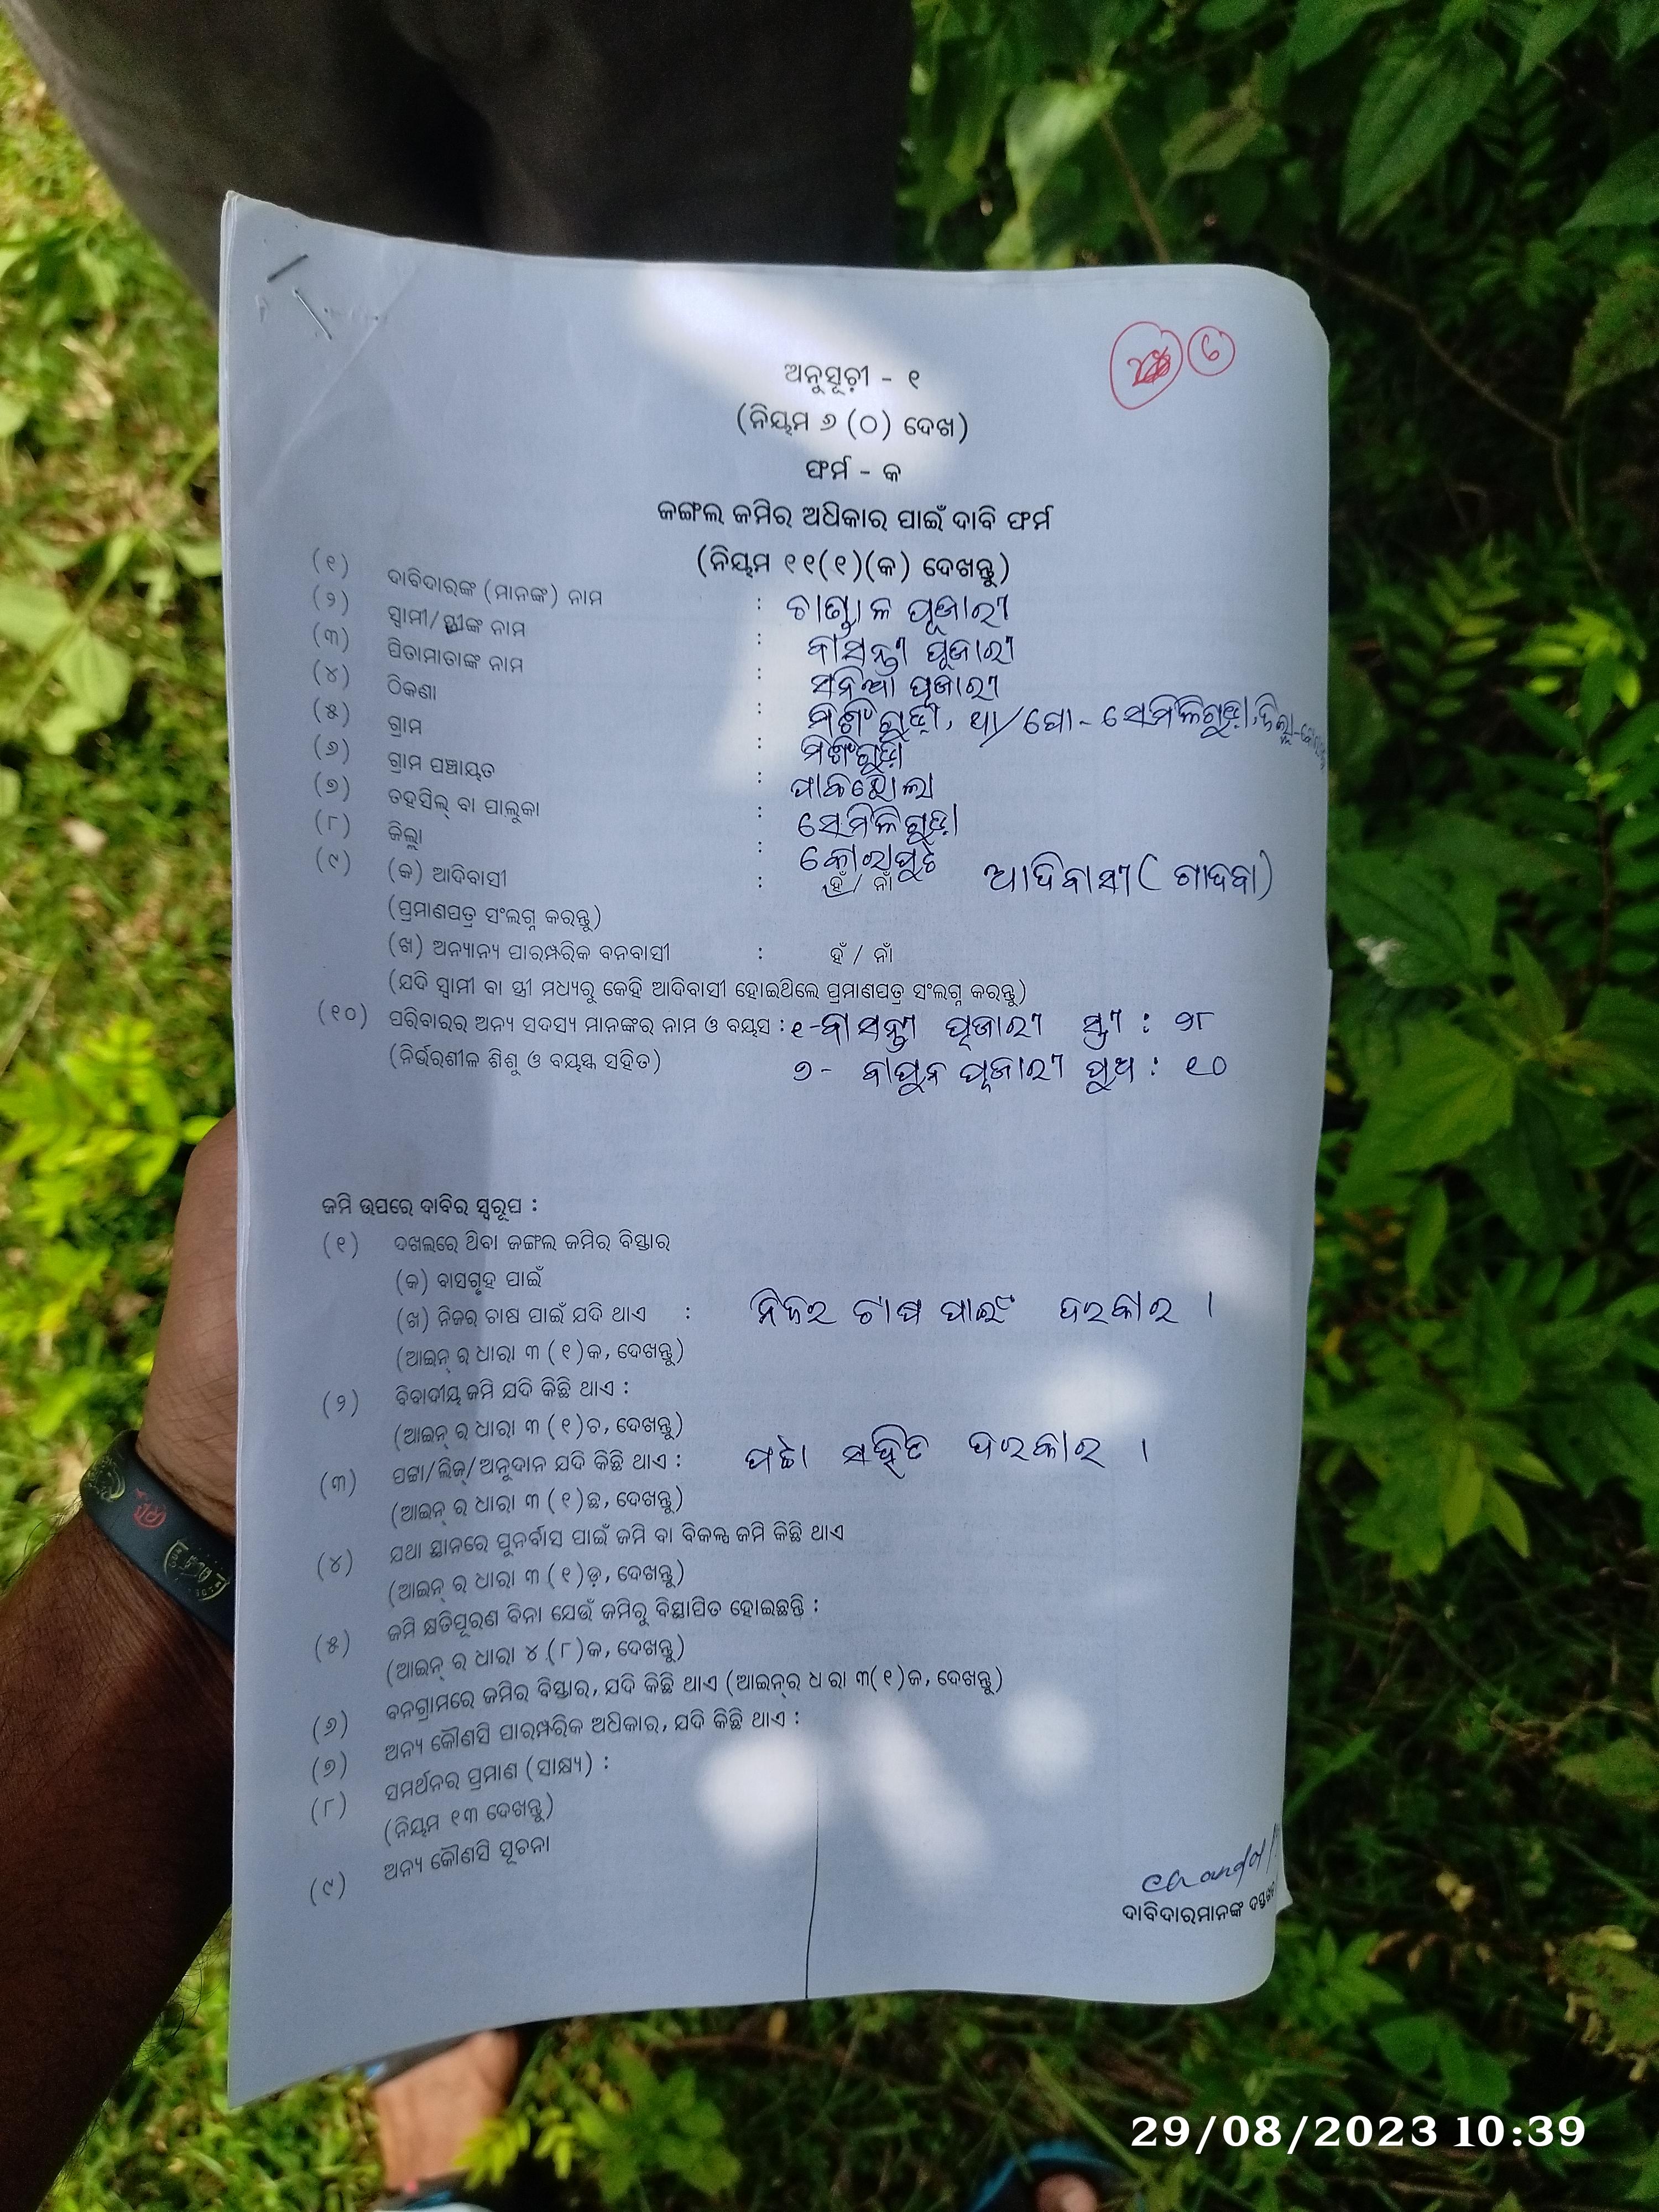 ୬
ଅନୁସୂଚୀ - ୧
(ନିୟମ ୬ (୦) ଦେଖ)
ଫର୍ମ - କ
ଜଙ୍ଗଲ ଜମିର ଅଧିକାର ପାଇଁ ଦାବି ଫର୍ମ
(ନିୟମ ୧୧(୧)(କ) ଦେଖନ୍ତୁ)
(୧) ଦାବିଦାରଙ୍କ (ମାନଙ୍କ) ନାମ : ଚାଣ୍ଡାଳ ପୂଜାରୀ
(୨) ସ୍ୱାମୀ/ସ୍ତ୍ରୀଙ୍କ ନାମ : ବାସନ୍ତୀ ପୂଜାରୀ
(୩) ପିତାମାତାଙ୍କ ନାମ : ସନିଆଁ ପୂଜାରୀ
(୪) ଠିକଣା : ମିଶିଂଗୁଡ଼ା, ଥା/ପୋ- ସେମିଳିଗୁଡ଼ା, ଜିଲ୍ଲା-
(୫) ଗ୍ରାମ : ମିଶିଂଗୁଡ଼ା
(୬) ଗ୍ରାମ ପଞ୍ଚାୟତ : ପାକଝୋଲା
(୭) ତହସିଲ୍ ବା ତାଲୁକା : ସେମିଳିଗୁଡ଼ା
(୮) ଜିଲ୍ଲା : କୋରାପୁଟ
(୯) (କ) ଆଦିବାସୀ : ହଁ / ନାଁ ଆଦିବାସୀ ( ଗାଦବା)
(ପ୍ରମାଣପତ୍ର ସଂଲଗ୍ନ କରନ୍ତୁ)
(ଖ) ଅନ୍ୟାନ୍ୟ ପାରମ୍ପରିକ ବନବାସୀ : ହଁ / ନାଁ
(ଯଦି ସ୍ୱାମୀ ବା ସ୍ତ୍ରୀ ମଧ୍ୟରୁ କେହି ଆଦିବାସୀ ହୋଇଥିଲେ ପ୍ରମାଣପତ୍ର ସଂଲଗ୍ନ କରନ୍ତୁ)
(୧୦) ପରିବାରର ଅନ୍ୟ ସଦସ୍ୟ ମାନଙ୍କର ନାମ ଓ ବୟସ : ୧-ବାସନ୍ତୀ ପୂଜାରୀ ସ୍ତ୍ରୀ : ୨୮
(ନିର୍ଭରଶୀଳ ଶିଶୁ ଓ ବୟସ୍କ ସହିତ) ୨- ବାପୁନ ପୂଜାରୀ ପୁଅ : ୧୦
ଜମି ଉପରେ ଦାବିର ସ୍ୱରୂପ :
(୧) ଦଖଲରେ ଥିବା ଜଙ୍ଗଲ ଜମିର ବିସ୍ତାର
(କ) ବାସଗୃହ ପାଇଁ
(ଖ) ନିଜର ଚାଷ ପାଇଁ ଯଦି ଥାଏ : ନିଜର ଚାଷ ପାଇଂ ଦରକାର ।
(ଆଇନ୍ ର ଧାରା ୩ (୧)କ, ଦେଖନ୍ତୁ)
(୨) ବିବାଦୀୟ ଜମି ଯଦି କିଛି ଥାଏ :
(ଆଇନ୍ ର ଧାରା ୩ (୧)ଚ, ଦେଖନ୍ତୁ)
(୩) ପଟ୍ଟା/ଲିଜ୍/ଅନୁଦାନ ଯଦି କିଛି ଥାଏ : ପଟ୍ଟା ସହିତ ଦରକାର ।
(ଆଇନ୍ ର ଧାରା ୩ (୧)ଛ, ଦେଖନ୍ତୁ)
(୪) ଯଥା ସ୍ଥାନରେ ପୁନର୍ବାସ ପାଇଁ ଜମି ବା ବିକଳ୍ପ ଜମି କିଛି ଥାଏ
(ଆଇନ୍ ର ଧାରା ୩ (୧)ଡ଼, ଦେଖନ୍ତୁ)
(୫) ଜମି କ୍ଷତିପୂରଣ ବିନା ଯେଉଁ ଜମିରୁ ବିସ୍ଥାପିତ ହୋଇଛନ୍ତି :
(ଆଇନ୍ ର ଧାରା ୪ (୮)କ, ଦେଖନ୍ତୁ)
(୬) ବନଗ୍ରାମରେ ଜମିର ବିସ୍ତାର, ଯଦି କିଛି ଥାଏ (ଆଇନ୍‌ର ଧାରା ୩(୧)କ, ଦେଖନ୍ତୁ)
(୭) ଅନ୍ୟ କୌଣସି ପାରମ୍ପରିକ ଅଧିକାର, ଯଦି କିଛି ଥାଏ :
(୮) ସମର୍ଥନର ପ୍ରମାଣ (ସାକ୍ଷ୍ୟ) :
(ନିୟମ ୧୩ ଦେଖନ୍ତୁ)
(୯) ଅନ୍ୟ କୌଣସି ସୂଚନା
Chandal
ଦାବିଦାରମାନଙ୍କ ଦସ୍ତଖତ
29/08/2023 10:39